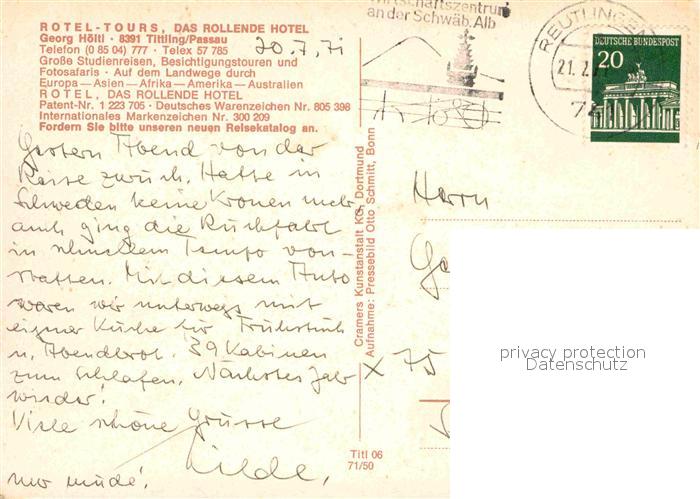 ROTEL-TOURS, DAS ROLLENDE HOTEL
Georg Höltl · 8391 Tittling/Passau
Telefon (0 85 04) 777 · Telex 57 785
20.7.71
Große Studienreisen, Besichtigungstouren und
Fotosafaris · Auf dem Landwege durch
Europa — Asien — Afrika — Amerika — Australien
ROTEL, DAS ROLLENDE HOTEL
Patent-Nr. 1 223 705 · Deutsches Warenzeichen Nr. 805 398
Internationales Markenzeichen Nr. 300 209
Fordern Sie bitte unseren neuen Reisekatalog an.
Gestern Abend von der
Reise zurück. Hatte in
Schweden keine Kronen mehr,
auch ging die Rückfahrt
in schnellem Tempo von-
statten. Mit diesem Auto
waren wir unterwegs mit
eigner Küche für Frühstück
u. Abendbrot. 39 Kabinen
zum Schlafen. Nächstes Jahr
wieder!
Viele schöne Grüsse
nur müde!
Cramers Kunstanstalt KG, Dortmund
Aufnahme: Pressebild Otto Schmitt, Bonn
Titl 06
71/50
Wirtschaftszentrum
an der Schwäb. Alb
REUTLINGEN
DEUTSCHE BUNDESPOST
20
Herrn
x 75
privacy protection
Datenschutz